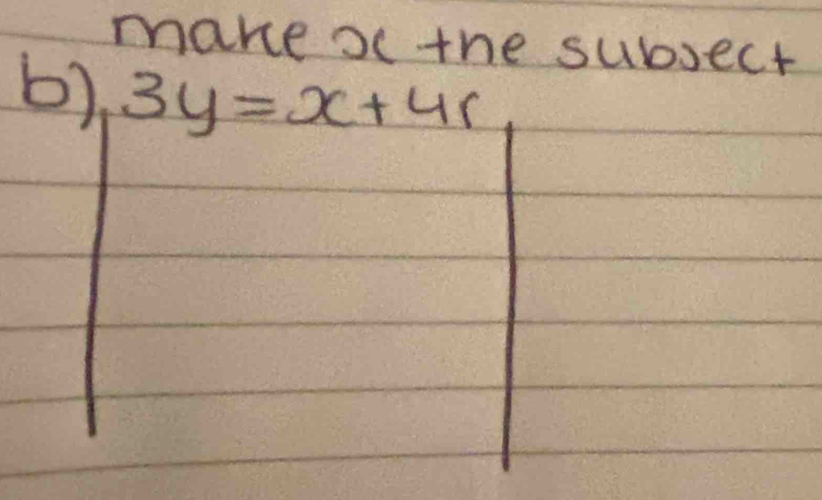 make x the subject
b) 3y = x + 4r